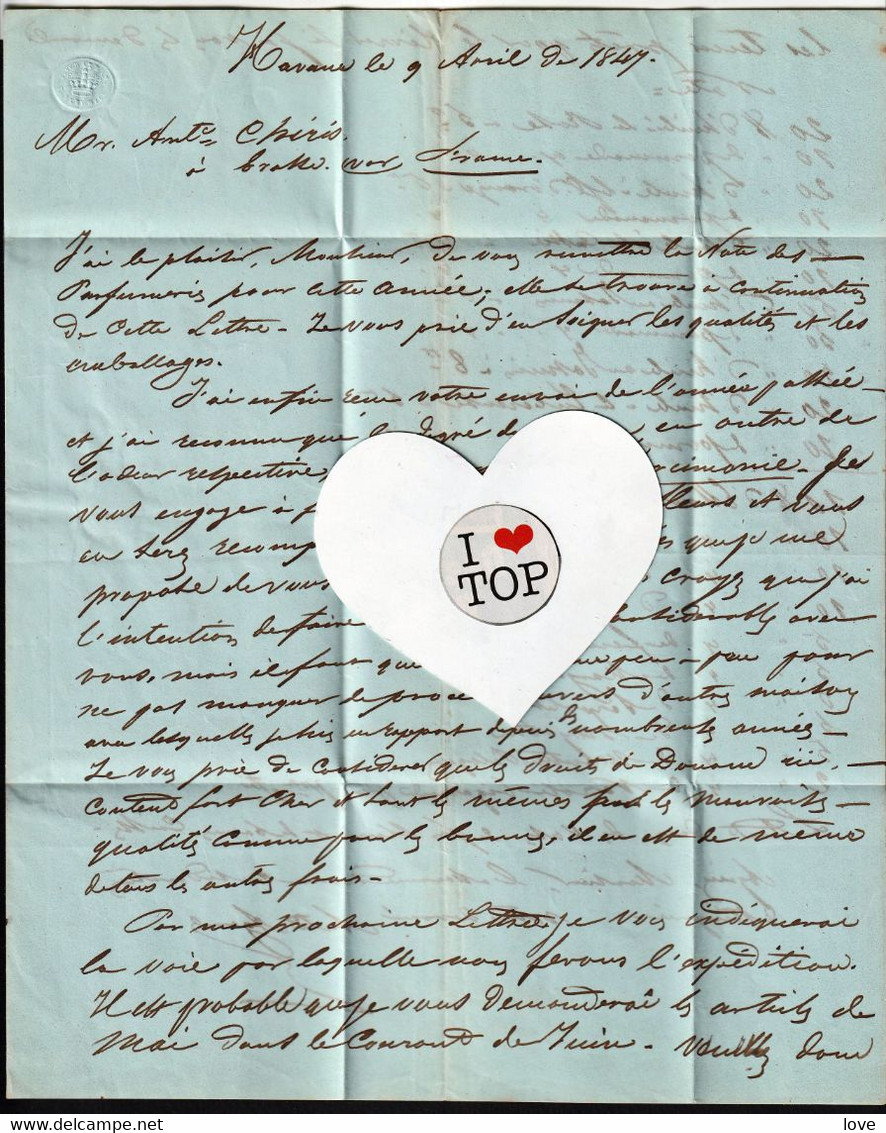 Havane le 9 Avril de 1847.
Mr. Ante. Chiris.
à Grasse. var France.
J'ai le plaisir, Monsieur, de vous remettre la Note des
Parfumeries pour cette année; elle se trouve à continuation
de cette Lettre - Je vous prie d'en soigner les qualités et les
emballages.
J'ai enfin reçu votre envoi de l'année passée
et j'ai reconnu que le degré de en outre de
l'odeur respective, Je
vous engage à f lleurs et vous
en serez recomp que je me
propose de vous croyez que j'ai
l'intention de faire considerables avec
vous, mais il faut que peu-à-peu pour
ne pas manquer de procé envers d'autres maisons
avec lesquelles je suis en rapport depuis de nombreuses années -
Je vous prie de considerer que les droits de Douane ici
coutent fort cher et sont les mêmes pour les mauvaises
qualités comme pour les bonnes, il en est de même
de tous les autres frais -
Par ma prochaine Lettre je vous indiquerai
la voie par laquelle vous ferons l'expédition.
Il est probable que je vous demanderai les articles de
Mai dans le Courant de Juin - donc
I ❤ TOP
www.delcampe.net
love